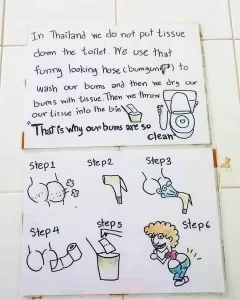 In Thailand we do not put tissue
down the toilet. We use that
funny looking hose (bumgun) to
wash our bums and then we dry our
bums with tissue. Then we throw
our tissue into the bin
"That is why our bums are so
clean"
Step 1 Step 2 Step 3
Step 4 Step 5 Step 6